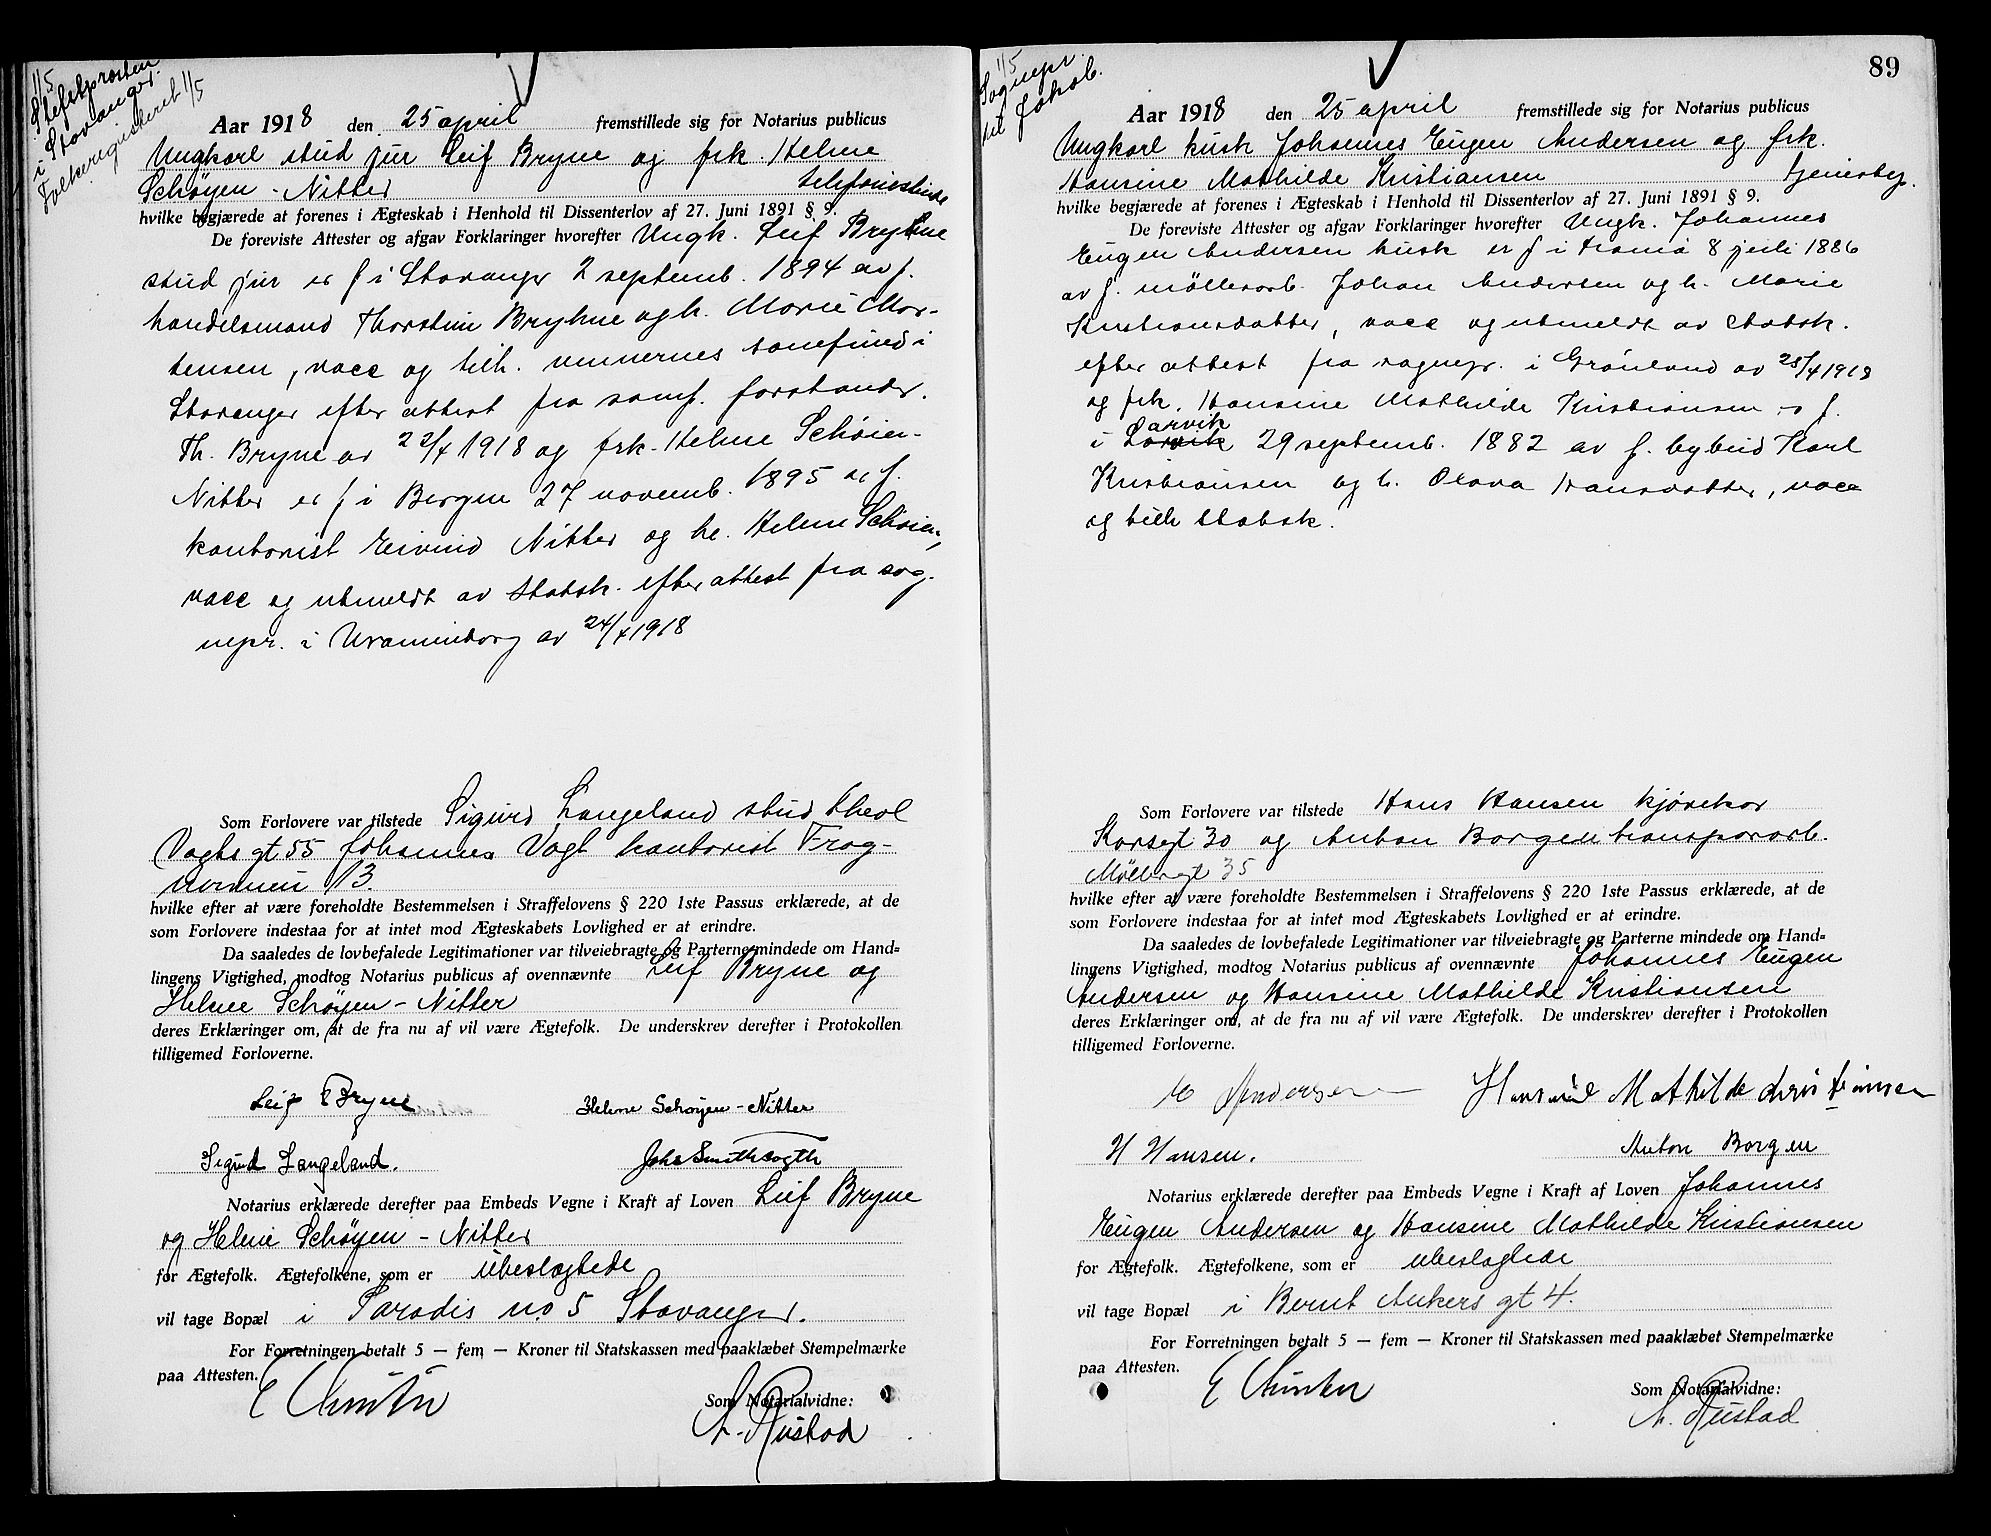 1/5
Stiftsprosten
i Stavanger.
Folkeregisteret 1/5
Aar 1918 den 25 april fremstillede sig for Notarius publicus
Ungkarl stud jur Leif Bryne og frk. Helene
Schøyen-Nitter telefonistinde
hvilke begjærede at forenes i Ægteskab i Henhold til Dissenterlov af 27. Juni 1891 § 9.
De foreviste Attester og afgav Forklaringer hvorefter Ungk. Leif Bryhne
stud jur er f i Stavanger 2 septemb. 1894 av f.
handelsmand Thorstein Bryhne og h. Marie Mor-
tensen, vacc og tilh. vennernes samfund i
Stavanger efter attest fra samf. forstander.
Th. Bryne av 22/4 1918 og frk. Helene Schøien-
Nitter er f i Bergen 27 novemb. 1895 av f.
kontorist Eivind Nitter og h. Helene Schøien,
vacc og utmeldt av statsk. efter attest fra sog-
nepr. i Uranienborg av 24/4 1918
Som Forlovere var tilstede Sigurd Langeland stud theol
Vogts gt 55 Johannes Vogt kontorist Frog-
nerveien 13.
hvilke efter at være foreholdte Bestemmelsen i Straffelovens § 220 1ste Passus erklærede, at de
som Forlovere indestaa for at intet mod Ægteskabets Lovlighed er at erindre.
Da saaledes de lovbefalede Legitimationer var tilveiebragte og Parterne mindede om Hand-
lingens Vigtighed, modtog Notarius publicus af ovennævnte Leif Bryne og
Helene Schøyen-Nitter
deres Erklæringer om, at de fra nu af vil være Ægtefolk. De underskrev derefter i Protokollen
tilligemed Forloverne.
Leif Bryne Helene Schøyen-Nitter
Sigurd Langeland. Johs Smith Vogth
Notarius erklærede derefter paa Embeds Vegne i Kraft af Loven Leif Bryne
og Helene Schøyen-Nitter
for Ægtefolk. Ægtefolkene, som er ubeslegtede
vil tage Bopæl i Paradis no. 5 Stavanger.
For Forretningen betalt 5 — fem — Kroner til Statskassen med paaklæbet Stempelmærke
paa Attesten.
Som Notarialvidne:
A. Rustad
89
1/5
Sognepr.
til Jakob.
Aar 1918 den 25 april fremstillede sig for Notarius publicus
Ungkarl kusk Johannes Eugen Andersen og frk.
Hansine Mathilde Kristiansen tjenerbeg.
hvilke begjærede at forenes i Ægteskab i Henhold til Dissenterlov af 27. Juni 1891 § 9.
De foreviste Attester og afgav Forklaringer hvorefter Ungk. Johannes
Eugen Andersen kusk er f i Hamar 8 juli 1886
av f. møllerarb. Johan Andersen og h. Marie
Kristiansdatter, vacc og utmeldt av statsk.
efter attest fra sognepr. i Grønland av 25/4 1918
og frk. Hansine Mathilde Kristiansen er f.
i Larvik 29 septemb. 1882 av f. bybud Karl
Kristiansen og h. Olava Hansdatter, vacc
og tilh statsk.
Som Forlovere var tilstede Hans Hansen kjørekar
Korsgt 30 og Anton Borgen transporarb.
Møllergt 35
hvilke efter at være foreholdte Bestemmelsen i Straffelovens § 220 1ste Passus erklærede, at de
som Forlovere indestaa for at intet mod Ægteskabets Lovlighed er at erindre.
Da saaledes de lovbefalede Legitimationer var tilveiebragte og Parterne mindede om Hand-
lingens Vigtighed, modtog Notarius publicus af ovennævnte Johannes Eugen
Andersen og Hansine Mathilde Kristiansen
deres Erklæringer om, at de fra nu af vil være Ægtefolk. De underskrev derefter i Protokollen
tilligemed Forloverne.
E Andersen Hansine Mathilde Kristiansen
H Hansen. Anton Borgen
Notarius erklærede derefter paa Embeds Vegne i Kraft af Loven Johannes
Eugen Andersen og Hansine Mathilde Kristiansen
for Ægtefolk. Ægtefolkene, som er ubeslegtede
vil tage Bopæl i Bernt Ankers gt 4.
For Forretningen betalt 5 — fem — Kroner til Statskassen med paaklæbet Stempelmærke
paa Attesten.
Som Notarialvidne:
A. Rustad